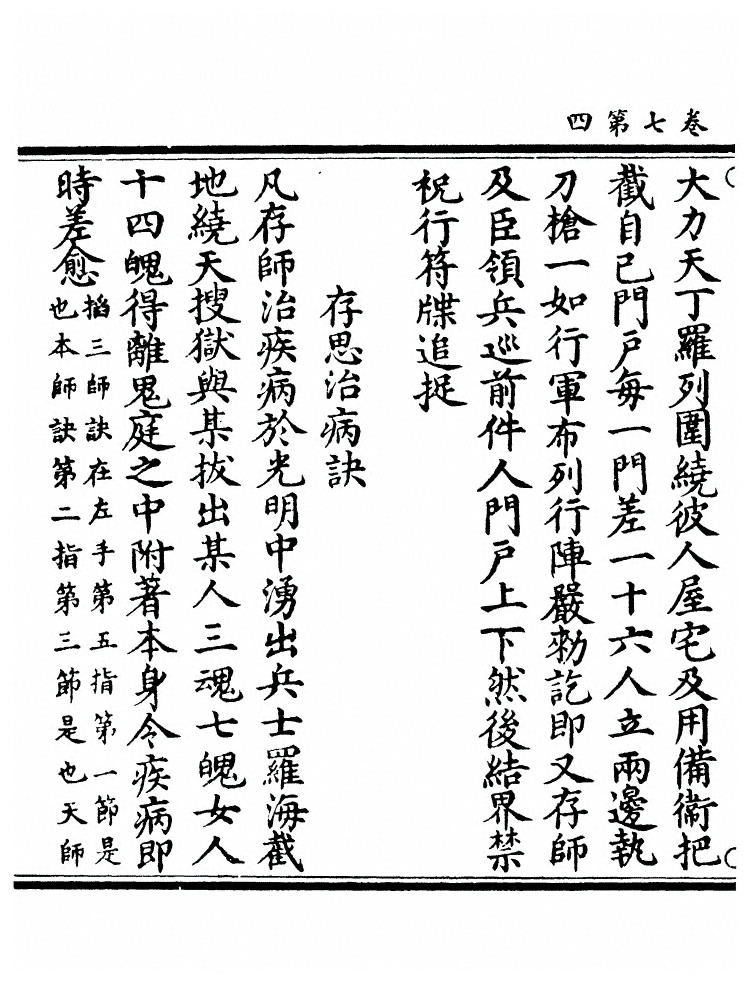 卷七第四
大力天丁羅列圍繞彼人屋宅及用備衛把
截自己門戶每一門差一十六人立兩邊執
刀槍一如行軍布列行陣嚴勑訖即又存師
及臣領兵巡前件人門戶上下然後結界禁
祝行符牒追捉
存思治病訣
凡存師治疾病於光明中湧出兵士羅海截
地繞天搜獄與某拔出某人三魂七魄女人
十四魄得離鬼庭之中附著本身令疾病即
時差愈
搯三師訣在左手第五指第一節是
也本師訣第二指第三節是也天師